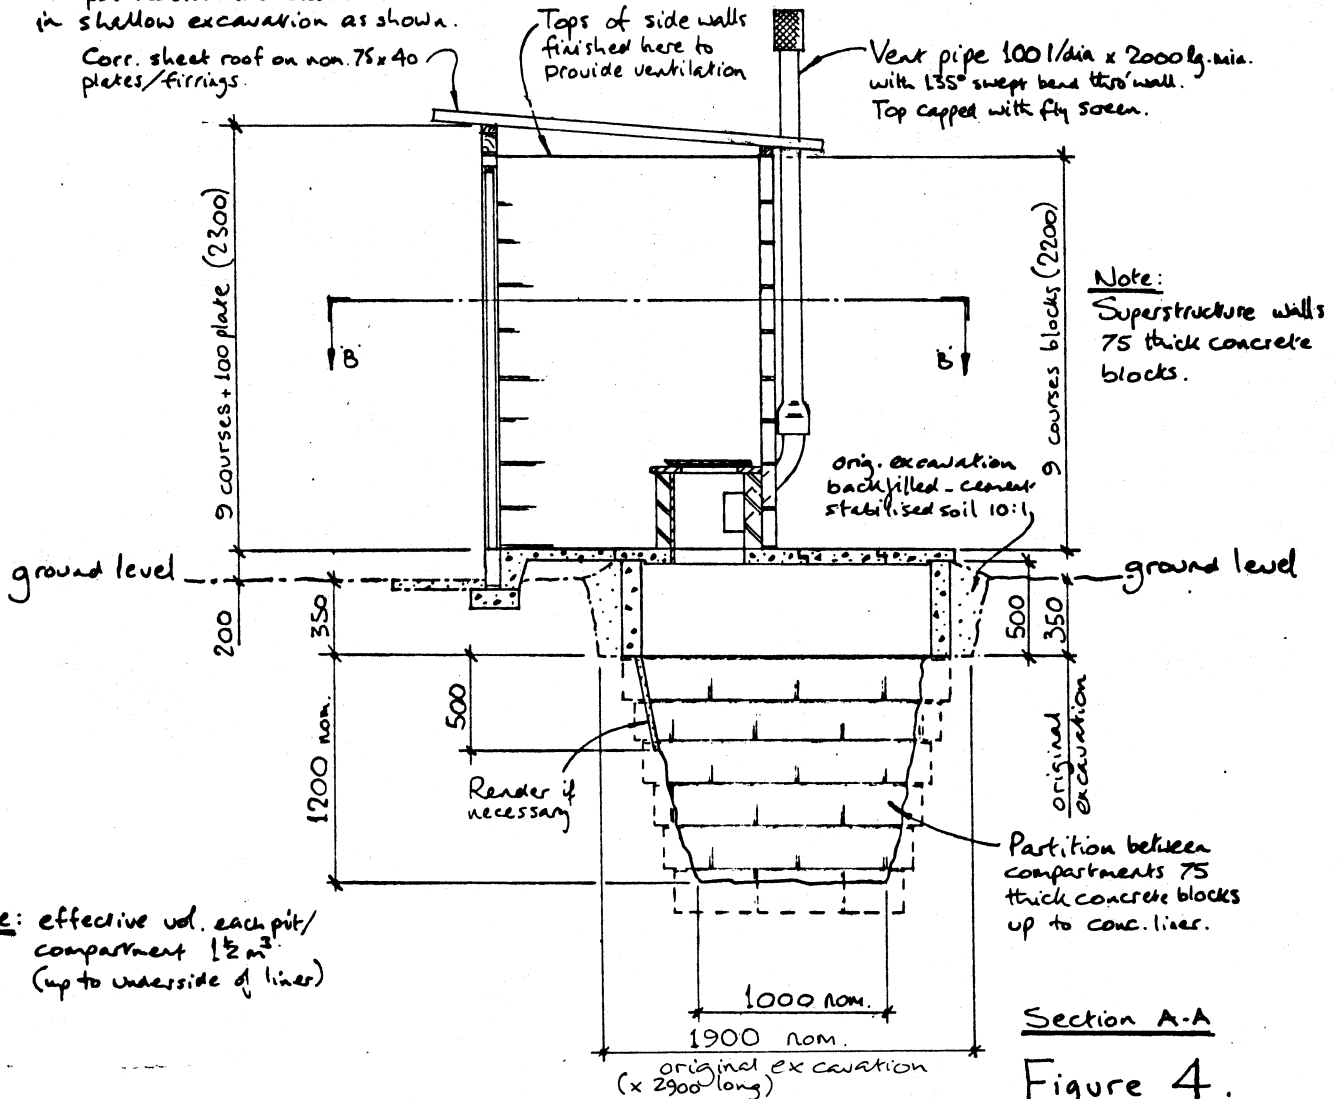 in shallow excavation as shown.
Corr. sheet roof on nom. 75x40
plates/firrings.
Tops of side walls
finished here to
provide ventilation
Vent pipe 100 I/dia x 2000 lg. min.
with 135° swept bend thro' wall.
Top capped with fly screen.
9 courses + 100 plate (2300)
9 courses blocks (2200)
Note:
Superstructure walls
75 thick concrete
blocks.
'B'
'B'
orig. excavation
backfilled - cement
stabilised soil 10:1
ground level
ground level
200
350
500
350
500
1200 nom.
original
excavation
Render if
necessary
Partition between
compartments 75
thick concrete blocks
up to conc. liner.
effective vol. each pit/
compartment 1½ m³
(up to underside of liner)
1000 nom.
1900 nom.
original excavation
(x 2900 long)
Section A-A
Figure 4.